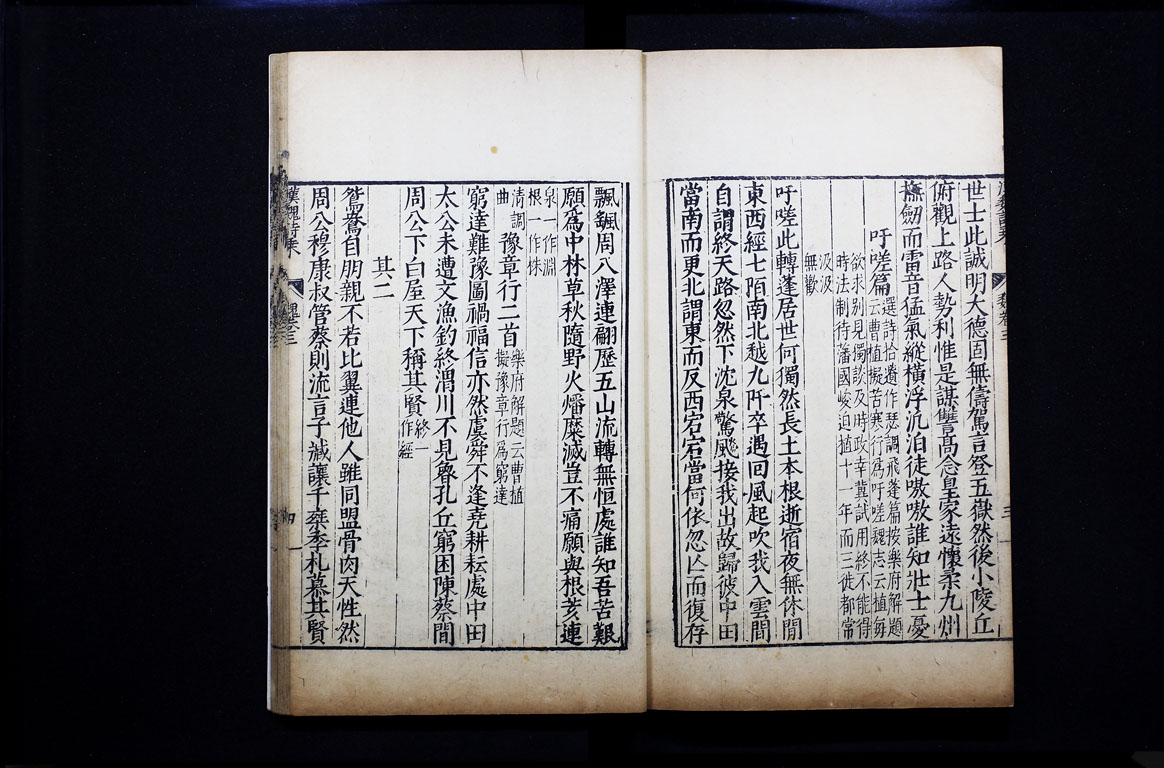 世士此誠明大德固無儔駕言登五嶽然後小陵丘
俯觀上路人勢利惟是謀讐高念皇家遠懷柔九州
撫劒而雷音猛氣縱橫浮沉泊徒嗷嗷誰知壯士憂
吁嗟篇
選詩拾遺作瑟調飛蓬篇按樂府解題
云曹植擬苦寒行為吁嗟魏志云植每
欲求別見獨談及時政幸冀試用終不能得
時法制待藩國峻迫植十一年而三徙都常
汲汲
無歡
吁嗟此轉蓬居世何獨然長土本根逝宿夜無休閒
東西經七陌南北越九阡卒遇回風起吹我入雲間
自謂終天路忽然下沈泉驚飈接我出故歸彼中田
當南而更北謂東而反西宕宕當何依忽亾而復存
飄颻周八澤連翩歷五山流轉無恒處誰知吾苦艱
願為中林草秋隨野火燔糜滅豈不痛願與根荄連
泉一作淵
根一作株
清調
曲
豫章行二首
樂府解題云曹植
擬豫章行為窮達
窮達難豫圖禍福信亦然虞舜不逢堯耕耘處中田
太公未遭文漁釣終渭川不見魯孔丘窮困陳蔡間
周公下白屋天下稱其賢
終一
作經
其二
鴛鴦自朋親不若比翼連他人雖同盟骨肉天性然
周公穆康叔管蔡則流言子臧讓千乘季札慕其賢
漢魏詩乘
魏卷三
四
三